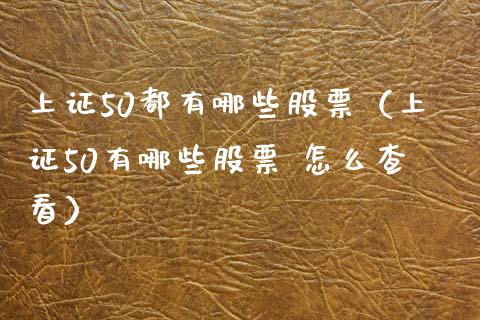 上证50都有哪些股票（上
证50有哪些股票 怎么查
看）